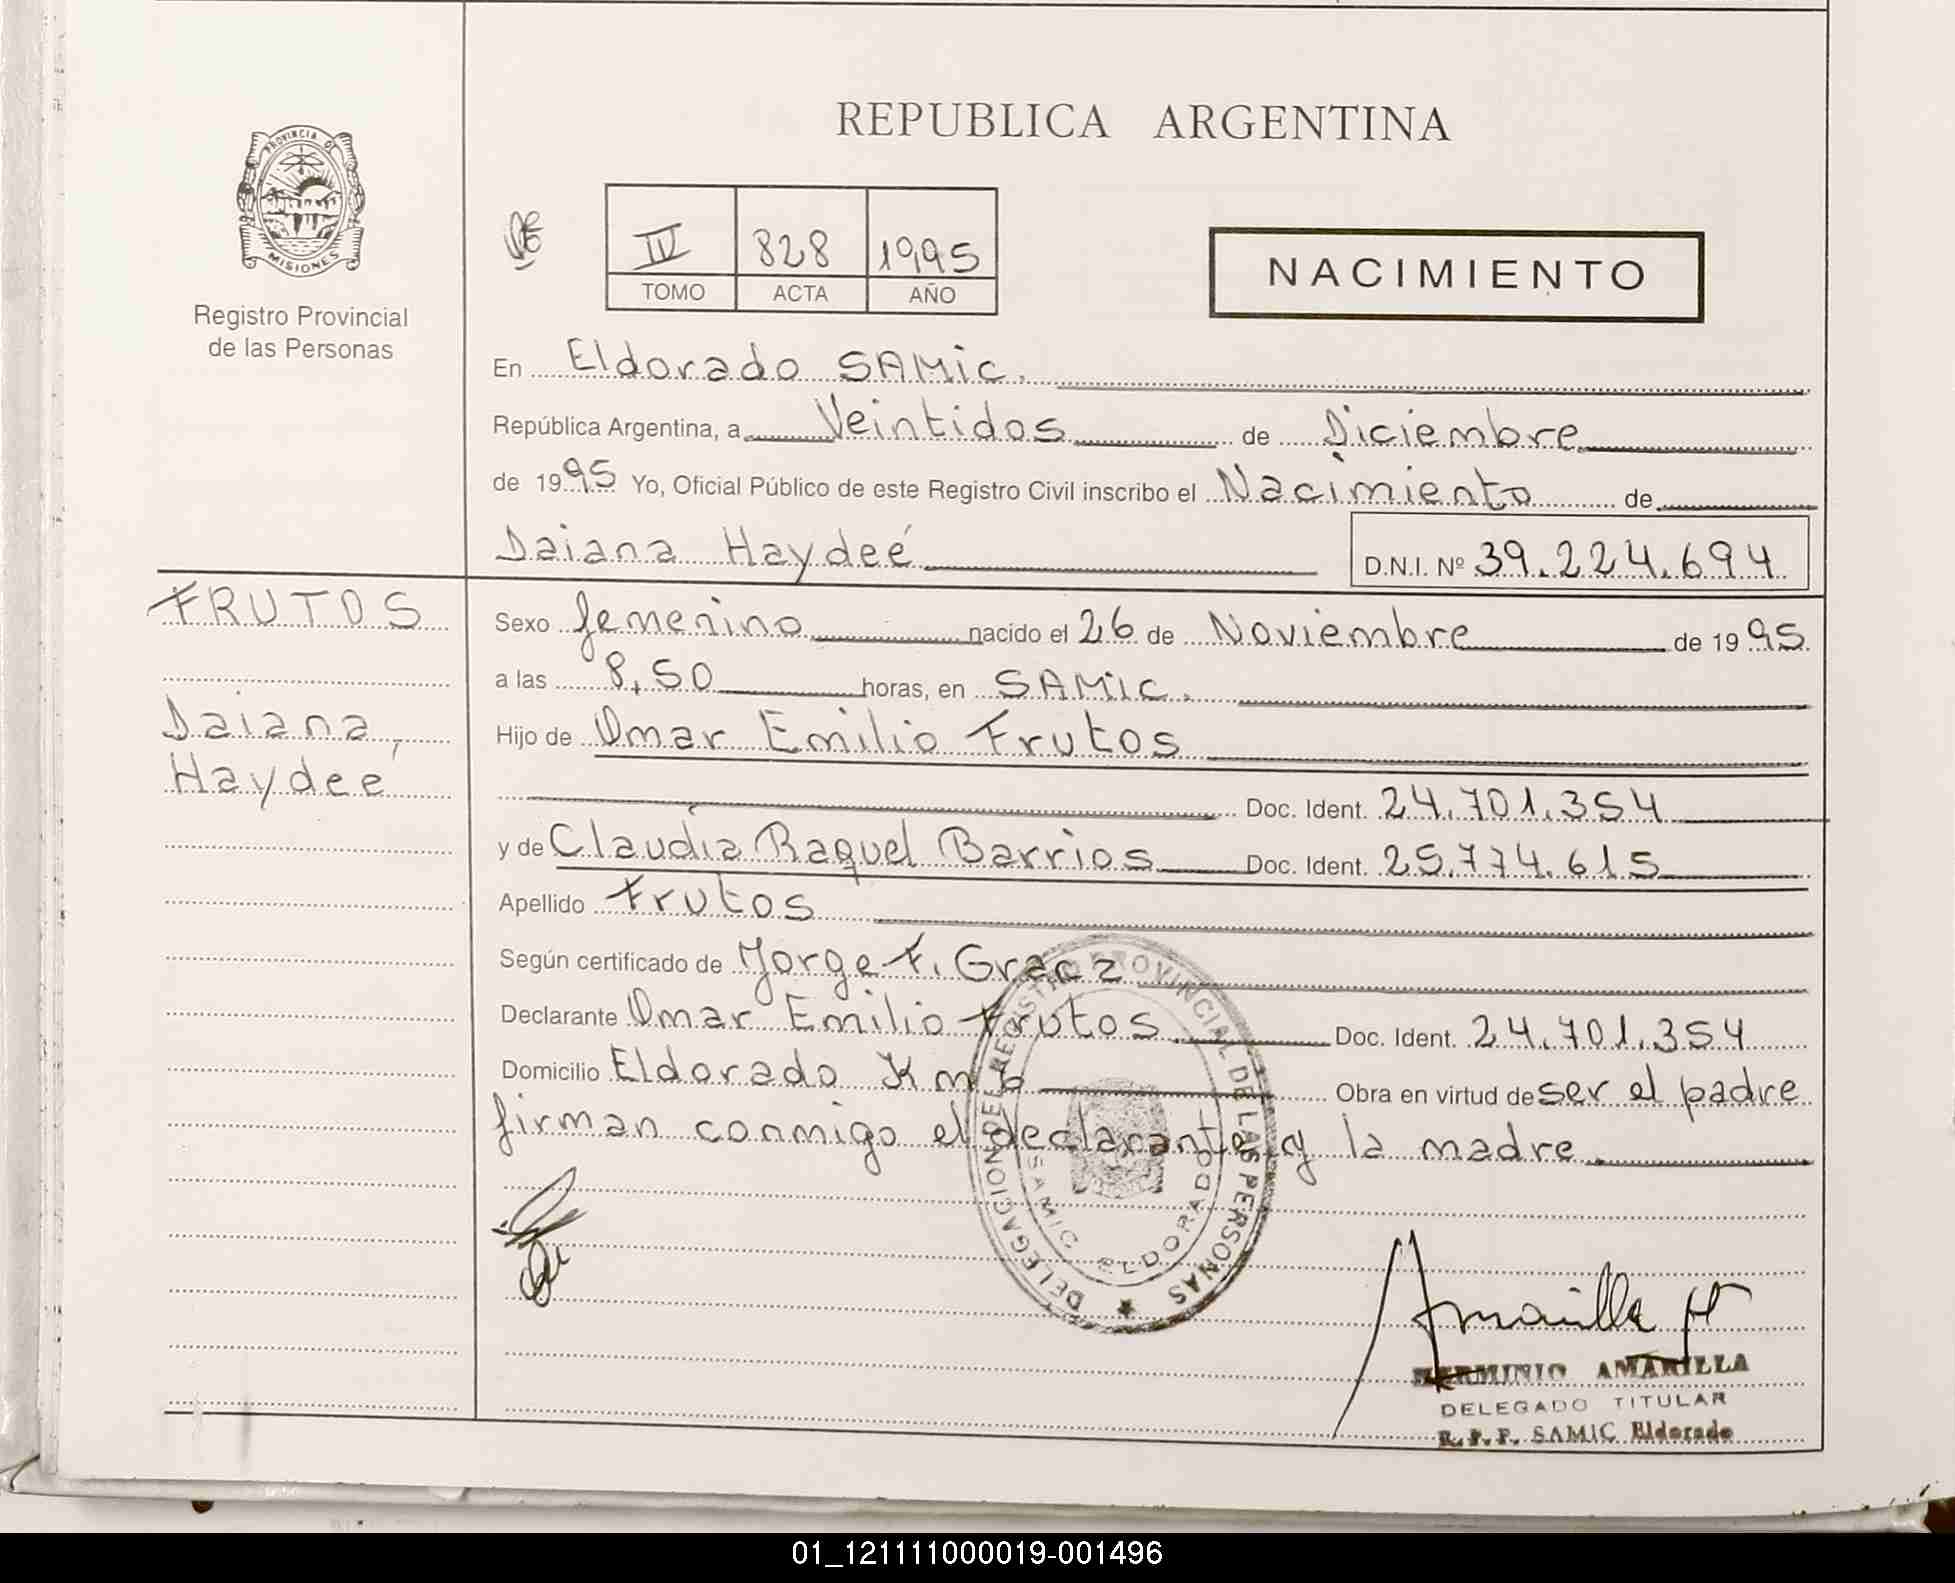 REPUBLICA ARGENTINA
PROVINCIA DE
MISIONES
Registro Provincial
de las Personas
IV 828 1995
TOMO ACTA AÑO
NACIMIENTO
En Eldorado SAMIC.
República Argentina, a Veintidos de Diciembre
de 1995 Yo, Oficial Público de este Registro Civil inscribo el Nacimiento de
Daiana Haydeé
D.N.I. Nº 39.224.694
FRUTOS
Daiana
Haydeé
Sexo femenino nacido el 26 de Noviembre de 1995
a las 8,50 horas, en SAMIC.
Hijo de Omar Emilio Frutos
Doc. Ident. 24.701.354
y de Claudia Raquel Barrios Doc. Ident. 25.774.615
Apellido Frutos
Según certificado de Jorge F. Gracz
Declarante Omar Emilio Frutos Doc. Ident. 24.701.354
Domicilio Eldorado Km 6 Obra en virtud de ser el padre
firman conmigo el declarante y la madre
DELEGACION DEL REGISTRO PROVINCIAL DE LAS PERSONAS
SAMIC ELDORADO
Amarilla H
HERMINIO AMARILLA
DELEGADO TITULAR
R.P.P. SAMIC Eldorado
01_121111000019-001496